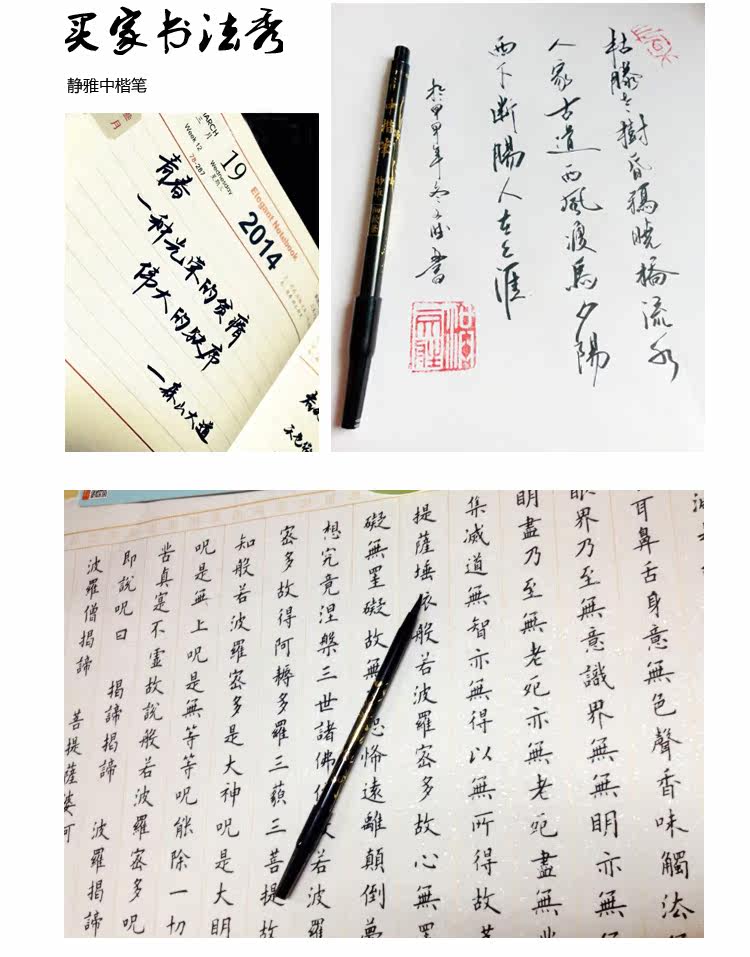 买家书法秀
静雅中楷笔
MARCH
三月
Week 12
78-287
19
Wednesday
Elegant Notebook
2014
青春
一种光荣的贫瘠
伟大的缺席
一森山大道
枯藤老樹昏鴉曉橋流水
人家古道西風瘦馬夕陽
西下断陽人在天涯
耳鼻舌身意無色聲香味觸法
眼界乃至無意識界無無明亦無
明盡乃至無老死亦無老死盡無
集滅道無智亦無得以無所得故菩
提薩埵依般若波羅密多故心無罣
礙無罣礙故無恐怖遠離顛倒夢
想究竟涅槃三世諸佛依般若波羅
密多故得阿耨多羅三藐三菩提故
知般若波羅密多是大神呪是大明
呪是無上呪是無等等呪能除一切
苦真寔不虛故說般若波羅密多呪
即說呪曰 揭諦揭諦 波羅揭諦
波羅僧揭諦 菩提薩婆訶